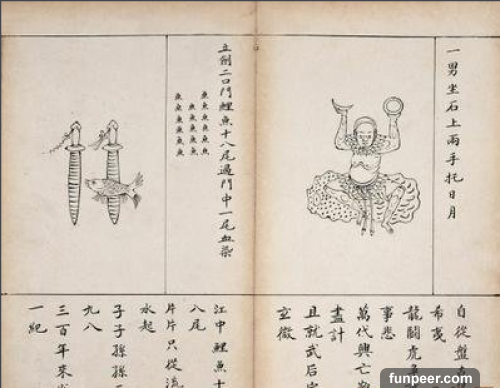 一男坐石上兩手托日月
自從盤
希夷
龍鬪虎
事悲
萬代興亡
盡計
且就武后
玄微
立劍二口門鯉魚十八尾過門中一尾血染
魚魚魚魚魚魚
魚魚魚魚魚
魚魚魚魚魚魚
江中鯉魚十
八尾
片片只從流
水起
子子孫孫
九八
三百年來
一紀
funpeer.com